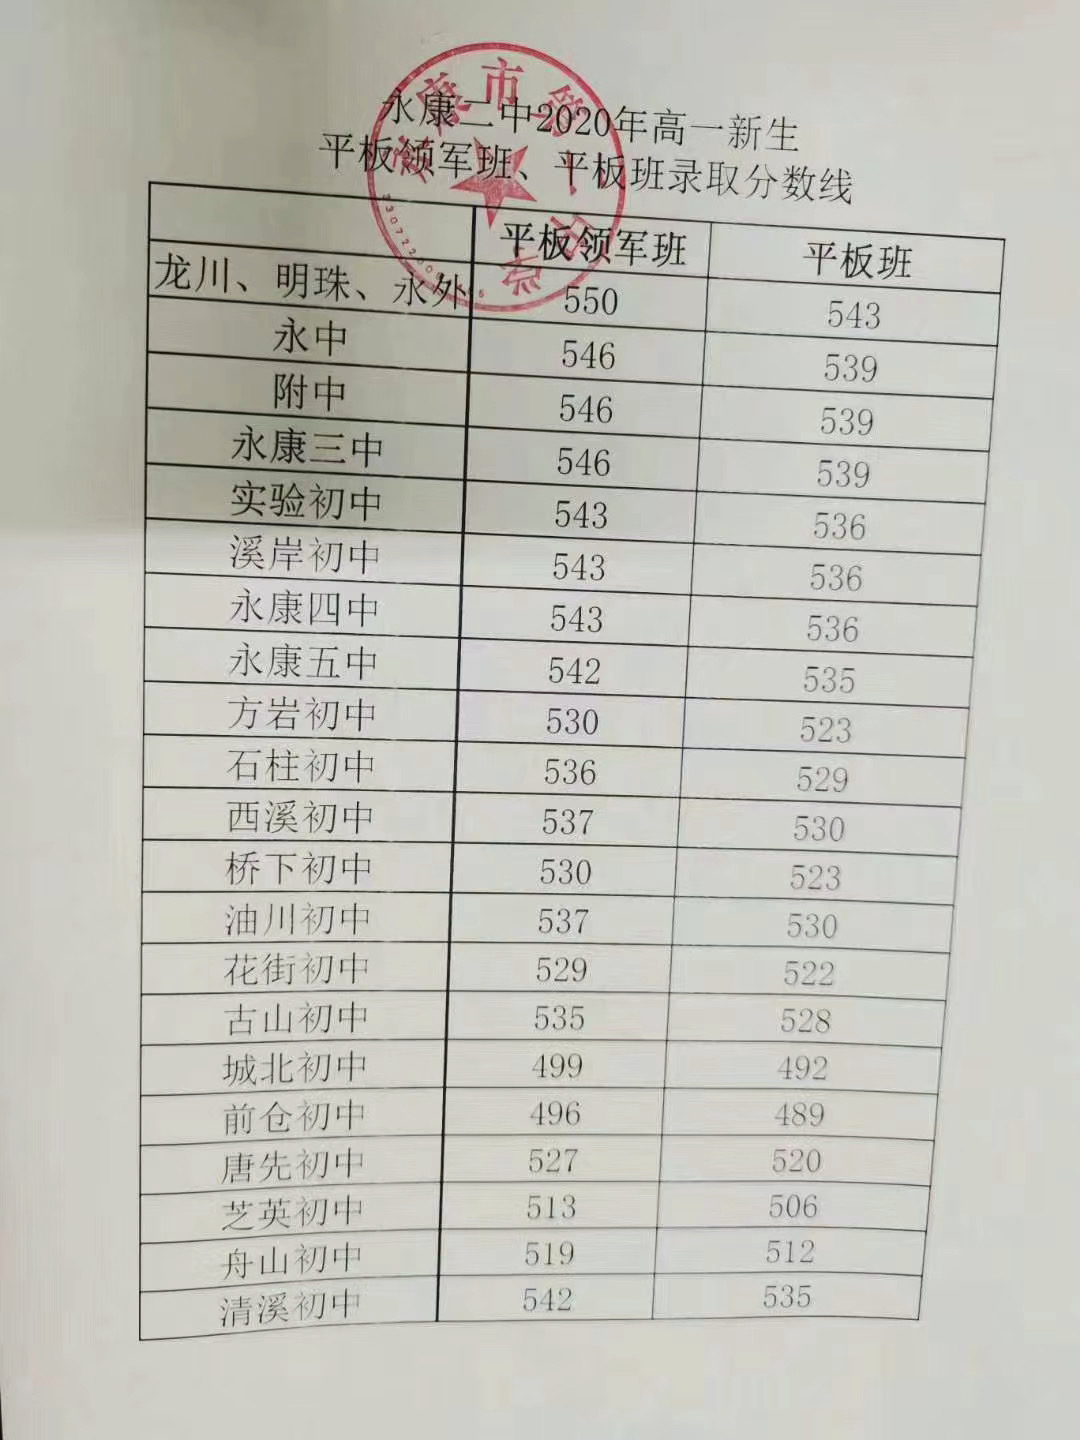 永康二中2020年高一新生
平板领军班、平板班录取分数线
平板领军班 平板班
龙川、明珠、永外 550 543
永中 546 539
附中 546 539
永康三中 546 539
实验初中 543 536
溪岸初中 543 536
永康四中 543 536
永康五中 542 535
方岩初中 530 523
石柱初中 536 529
西溪初中 537 530
桥下初中 530 523
油川初中 537 530
花街初中 529 522
古山初中 535 528
城北初中 499 492
前仓初中 496 489
唐先初中 527 520
芝英初中 513 506
舟山初中 519 512
清溪初中 542 535